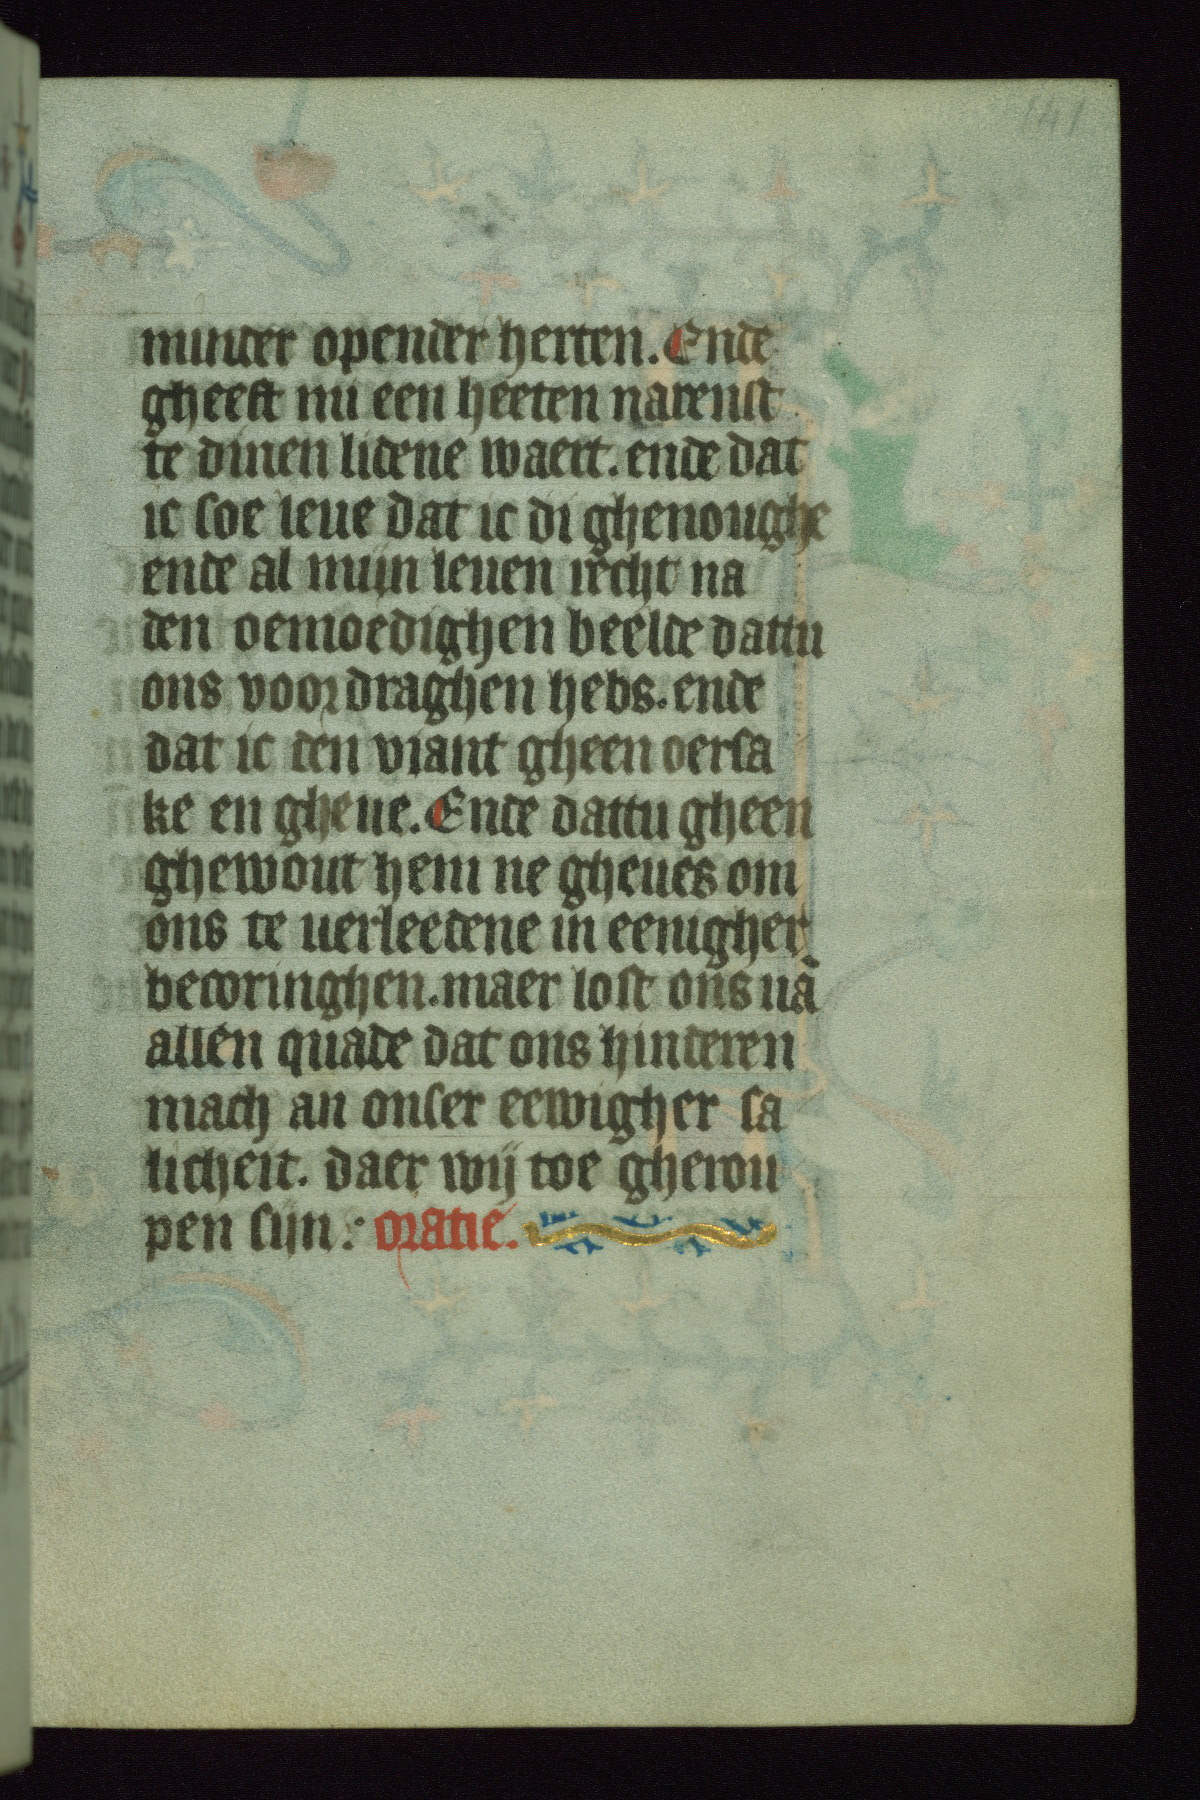 141
minder opender herten. Ende
gheeft mi een heeten narenst
te dinen lidene waert. ende dat
ic soe leue dat ic di ghenoughe
ende al mijn leuen recht na
den oemoedighen beelde dattu
ons voordraghen hebs. ende
dat ic den viant gheen oersa
ke en gheue. Ende dattu gheen
ghewout hem ne gheues om
ons te uerleedene in eenigher
becoringhen. maer lost ons uā
allen quade dat ons hinderen
mach an onser eewigher sa
licheit. daer wij toe gherou
pen sijn: oratie.